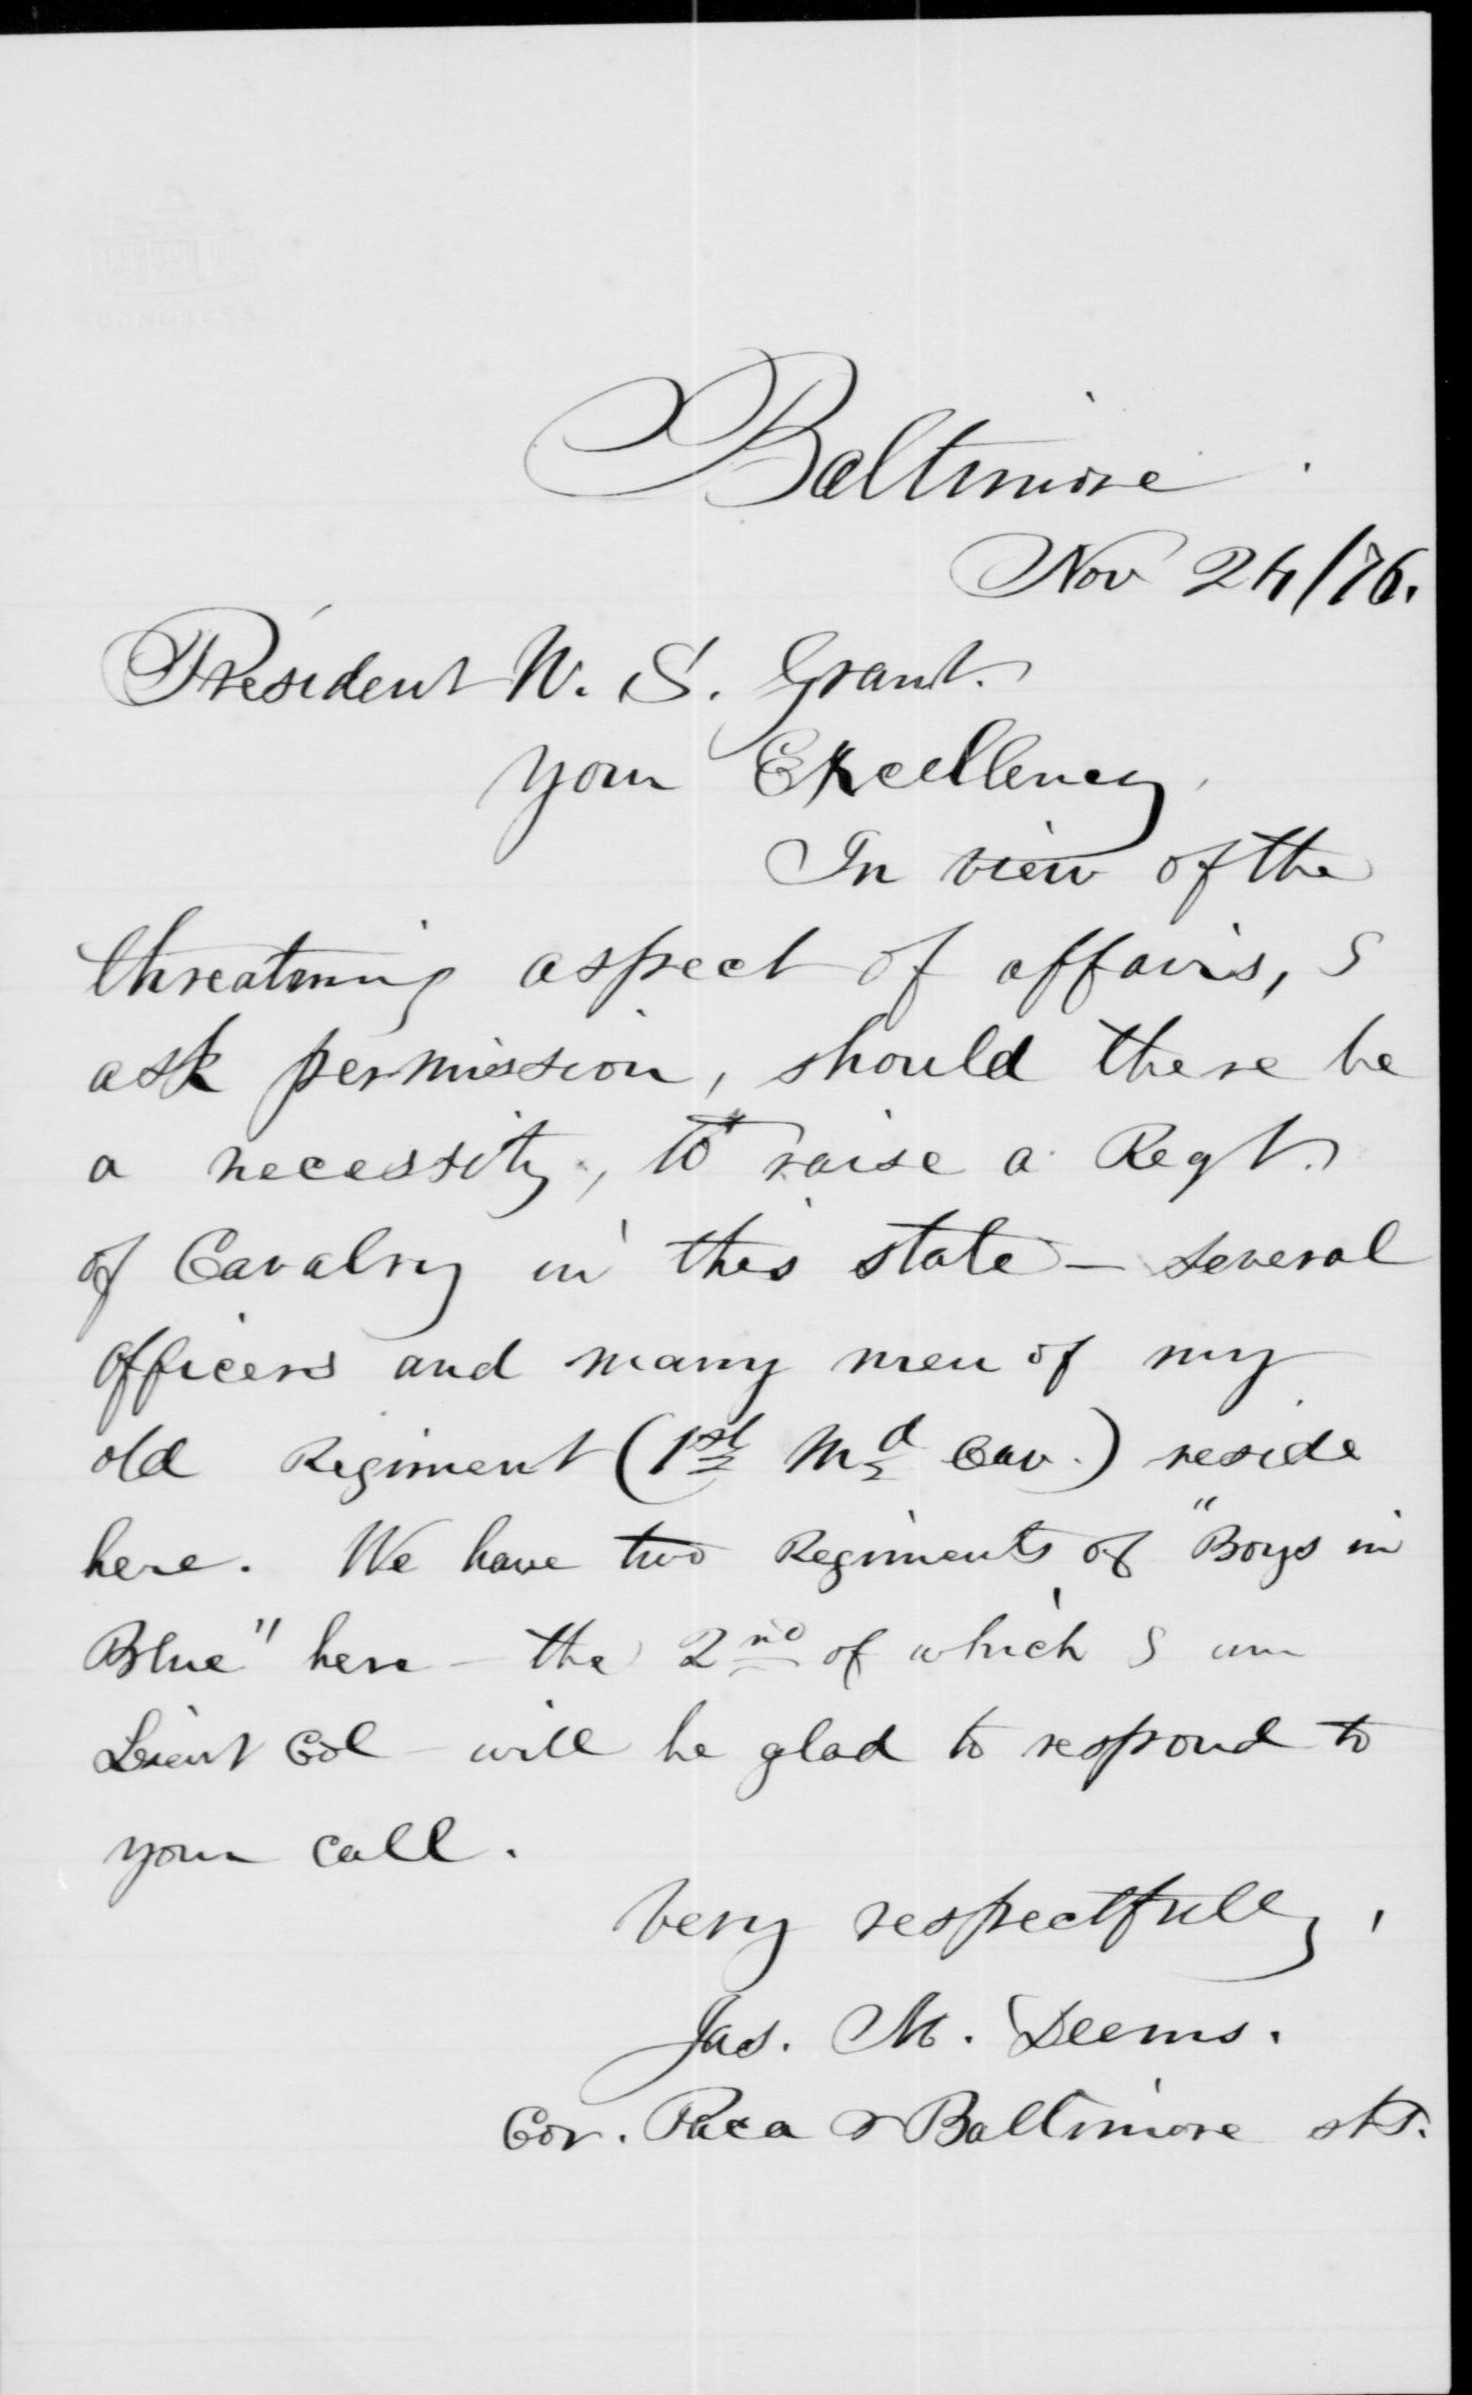 Baltimore
Nov 24/76.
President U. S. Grant.
Your Excellency,
In view of the
threatning aspect of affairs, I
ask permission, should there be
a necessity, to raise a Regt.
of Cavalry in this state – several
officers and many men of my
old Regiment (1st Md Cav.) reside
here. We have two Regiments of "Boys in
Blue" here – the 2nd of which I am
Lieut Col – will be glad to respond to
your call.
Very respectfully,
Jas. M. Deems.
Cor. Paca & Baltimore sts.